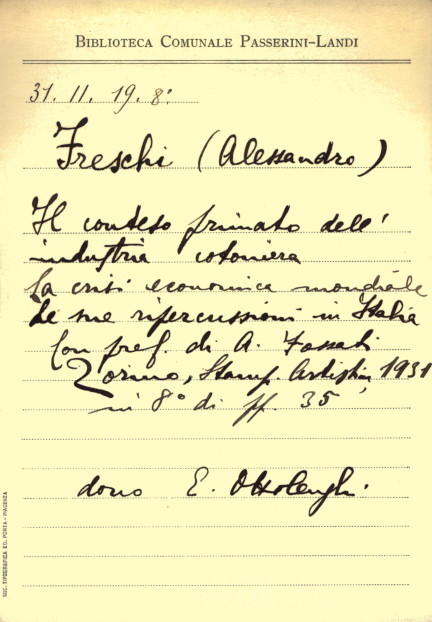 BIBLIOTECA COMUNALE PASSERINI-LANDI
31. 11. 19. 8º
Freschi (Alessandro)
Il conteso primato dell'
industria cotoniera
la crisi economica mondiale
le sue ripercussioni in Italia
Con pref. di A. Fossati
Torino, Stamp. Artistica 1931
in 8º di pp. 35
dono E. Ottolenghi.
SOC. TIPOGRAFICA ED. PORTA - PIACENZA